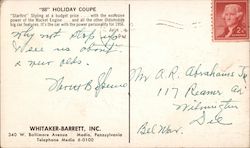 "88" HOLIDAY COUPE
"Starfire" Styling at a budget price . . . with the exclusive
power of the Rocket Engine . . . and all the other Oldsmobile
big car features. It's the car with the power personality for 1954.
Why not stop up
& see us about
a new olds.
WHITAKER-BARRETT, INC.
340 W. Baltimore Avenue Media, Pennsylvania
Telephone Media 6-0100
2¢
Mr A.R. Abrahams Jr
117 Reamer Av
Wilmington
Del